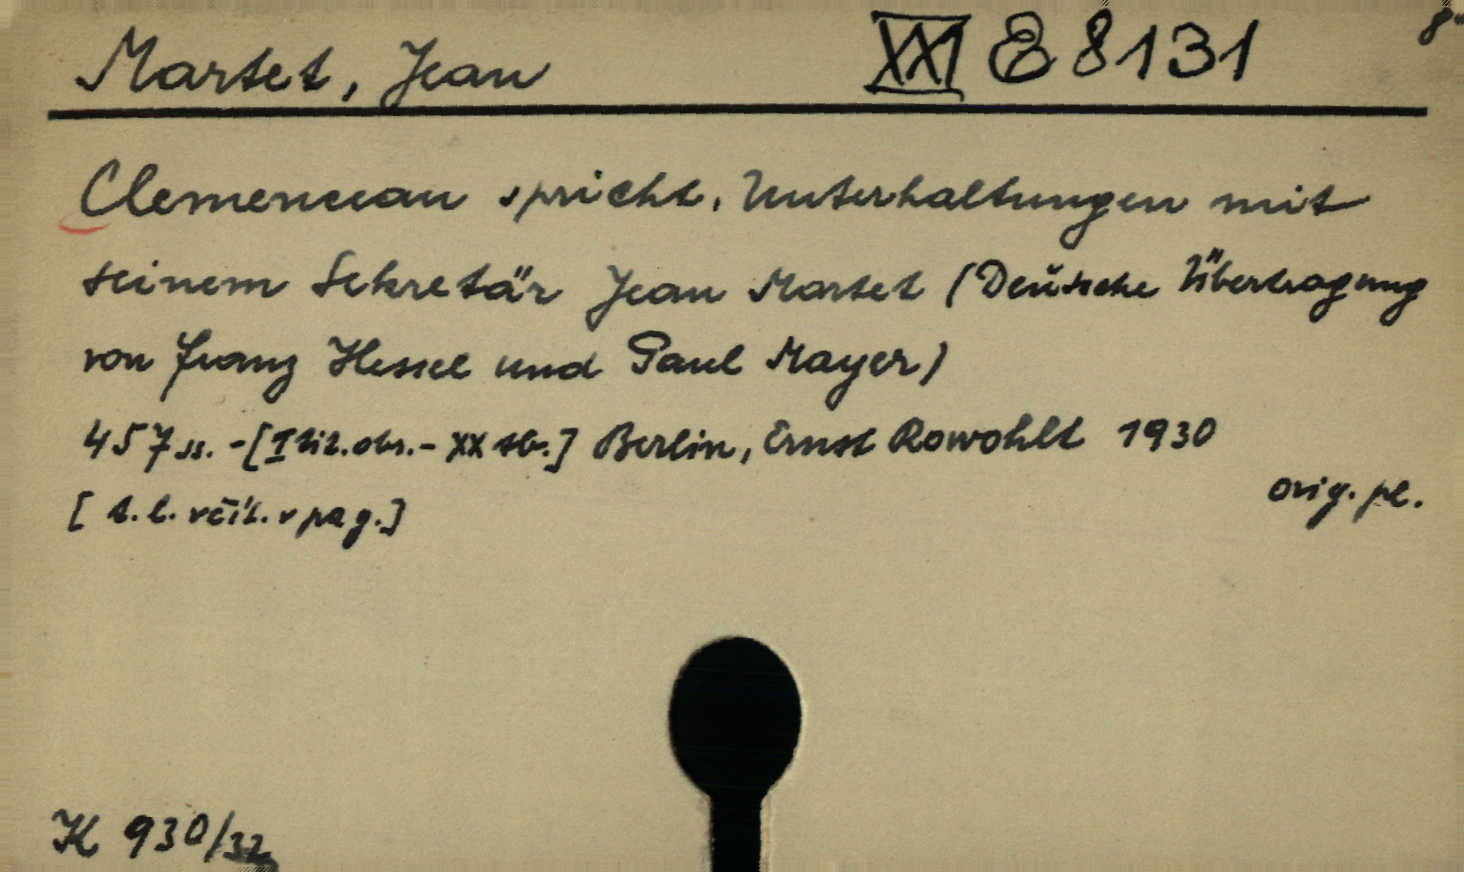 Martet, Jean XXI E 8131 8°
Clemenceau spricht. Unterhaltungen mit
seinem Sekretär Jean Martet (Deŭtsche Übertragung
von Franz Hessel und Paul Mayer)
457 ss. - [I tit. obr. - XX tb.] Berlin, Ernst Rowohlt 1930
orig. pl.
[t. l. včít. v pag.]
K 930/32